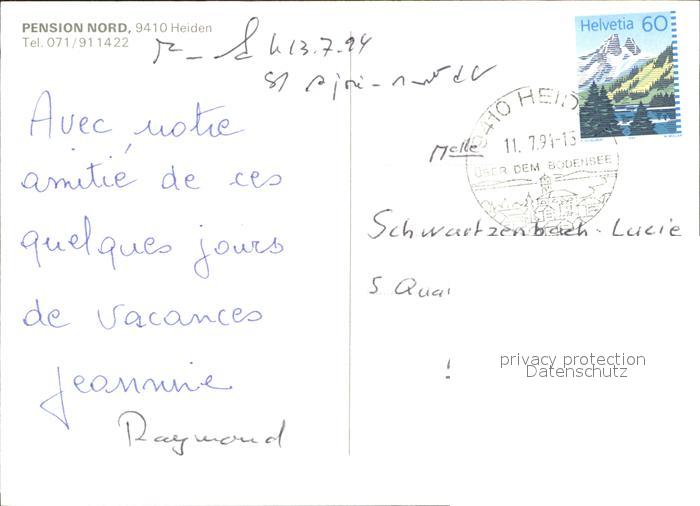 PENSION NORD, 9410 Heiden
Tel. 071/911422
13.7.94
Avec notre
amitié de ces
quelques jours
de vacances
Jeannine
Raymond
Helvetia 60
9410 HEID
11. 7.94-15
ÜBER DEM BODENSEE
Melle
Schwartzenbach-Lucie
5 Quai
privacy protection
Datenschutz